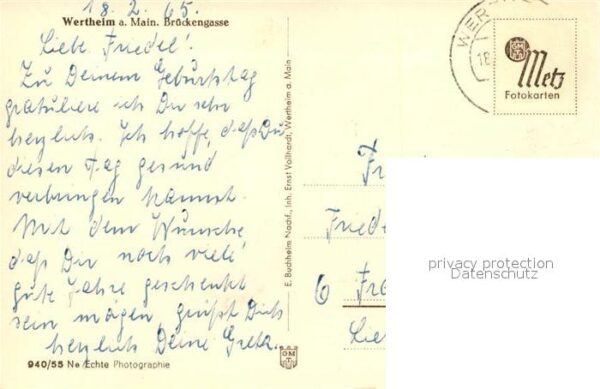 18.2.65.
Wertheim a. Main. Brückengasse
Liebe Friedel!
Zu Deinem Geburtstag
gratuliere ich Dir sehr
herzlich. Ich hoffe, daß Du
diesen Tag gesund
verbringen kannst.
Mit dem Wunsche
daß Dir noch viele
gute Jahre geschenkt
sein mögen, grüßt Dich
herzlich Deine Greta.
940/55 Ne Echte Photographie
E. Buchheim Nachf., Inh. Ernst Vollhardt, Wertheim a. Main
GM
WER
18
Metz
Fotokarten
Fr
Friede
6 Fra
Lie
privacy protection
Datenschutz